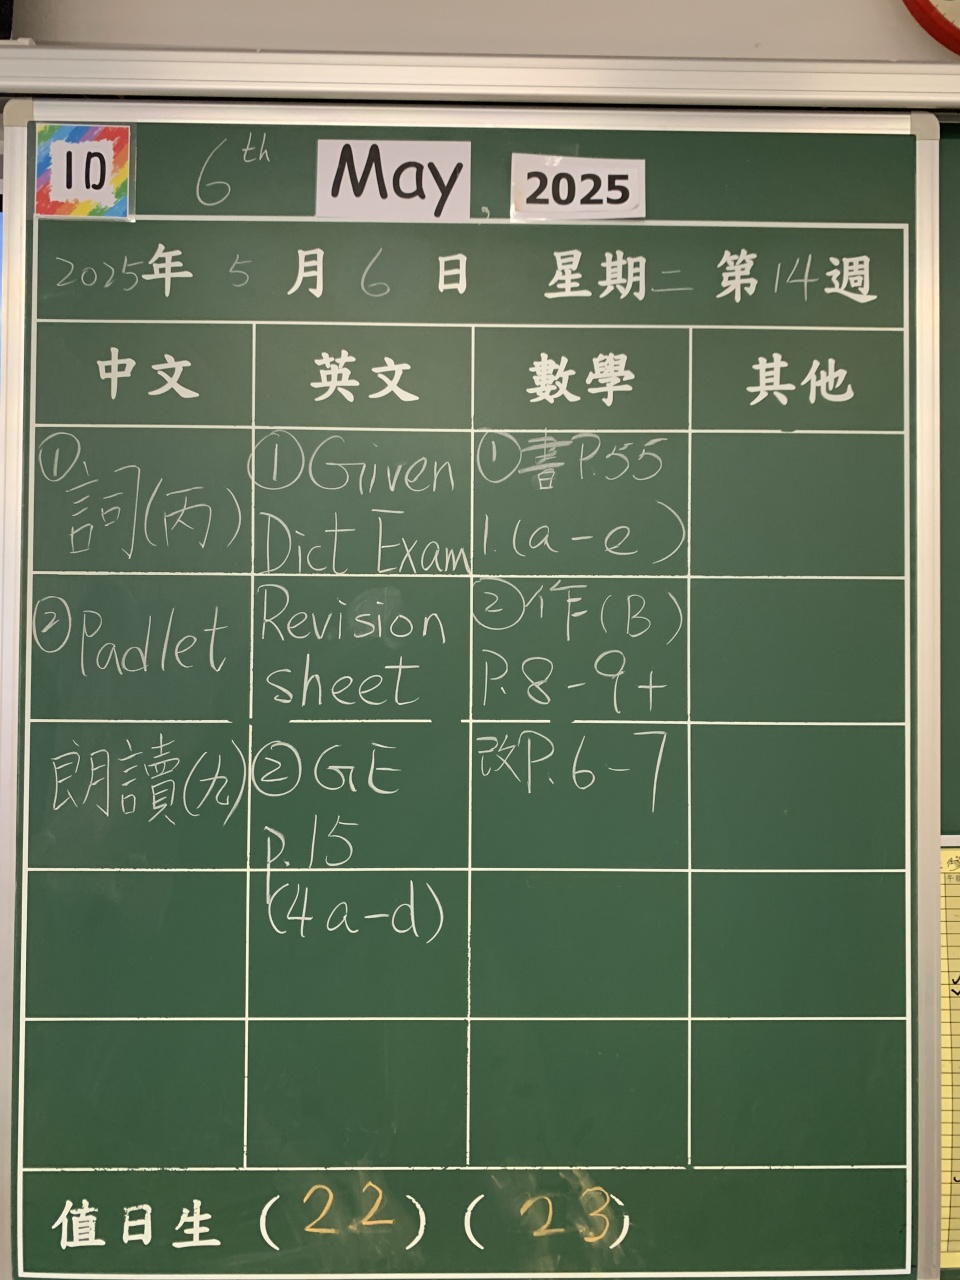 1D 6th May, 2025
2025年 5 月 6 日 星期二 第14週
中文 英文 數學 其他
①詞(丙)
②Padlet
朗讀(九)
①Given
Dict Exam
Revision
sheet
②GE
P.15
(4a-d)
①書P.55
1.(a-e)
②作(B)
P.8-9+
改P.6-7
值日生 (22) (23)